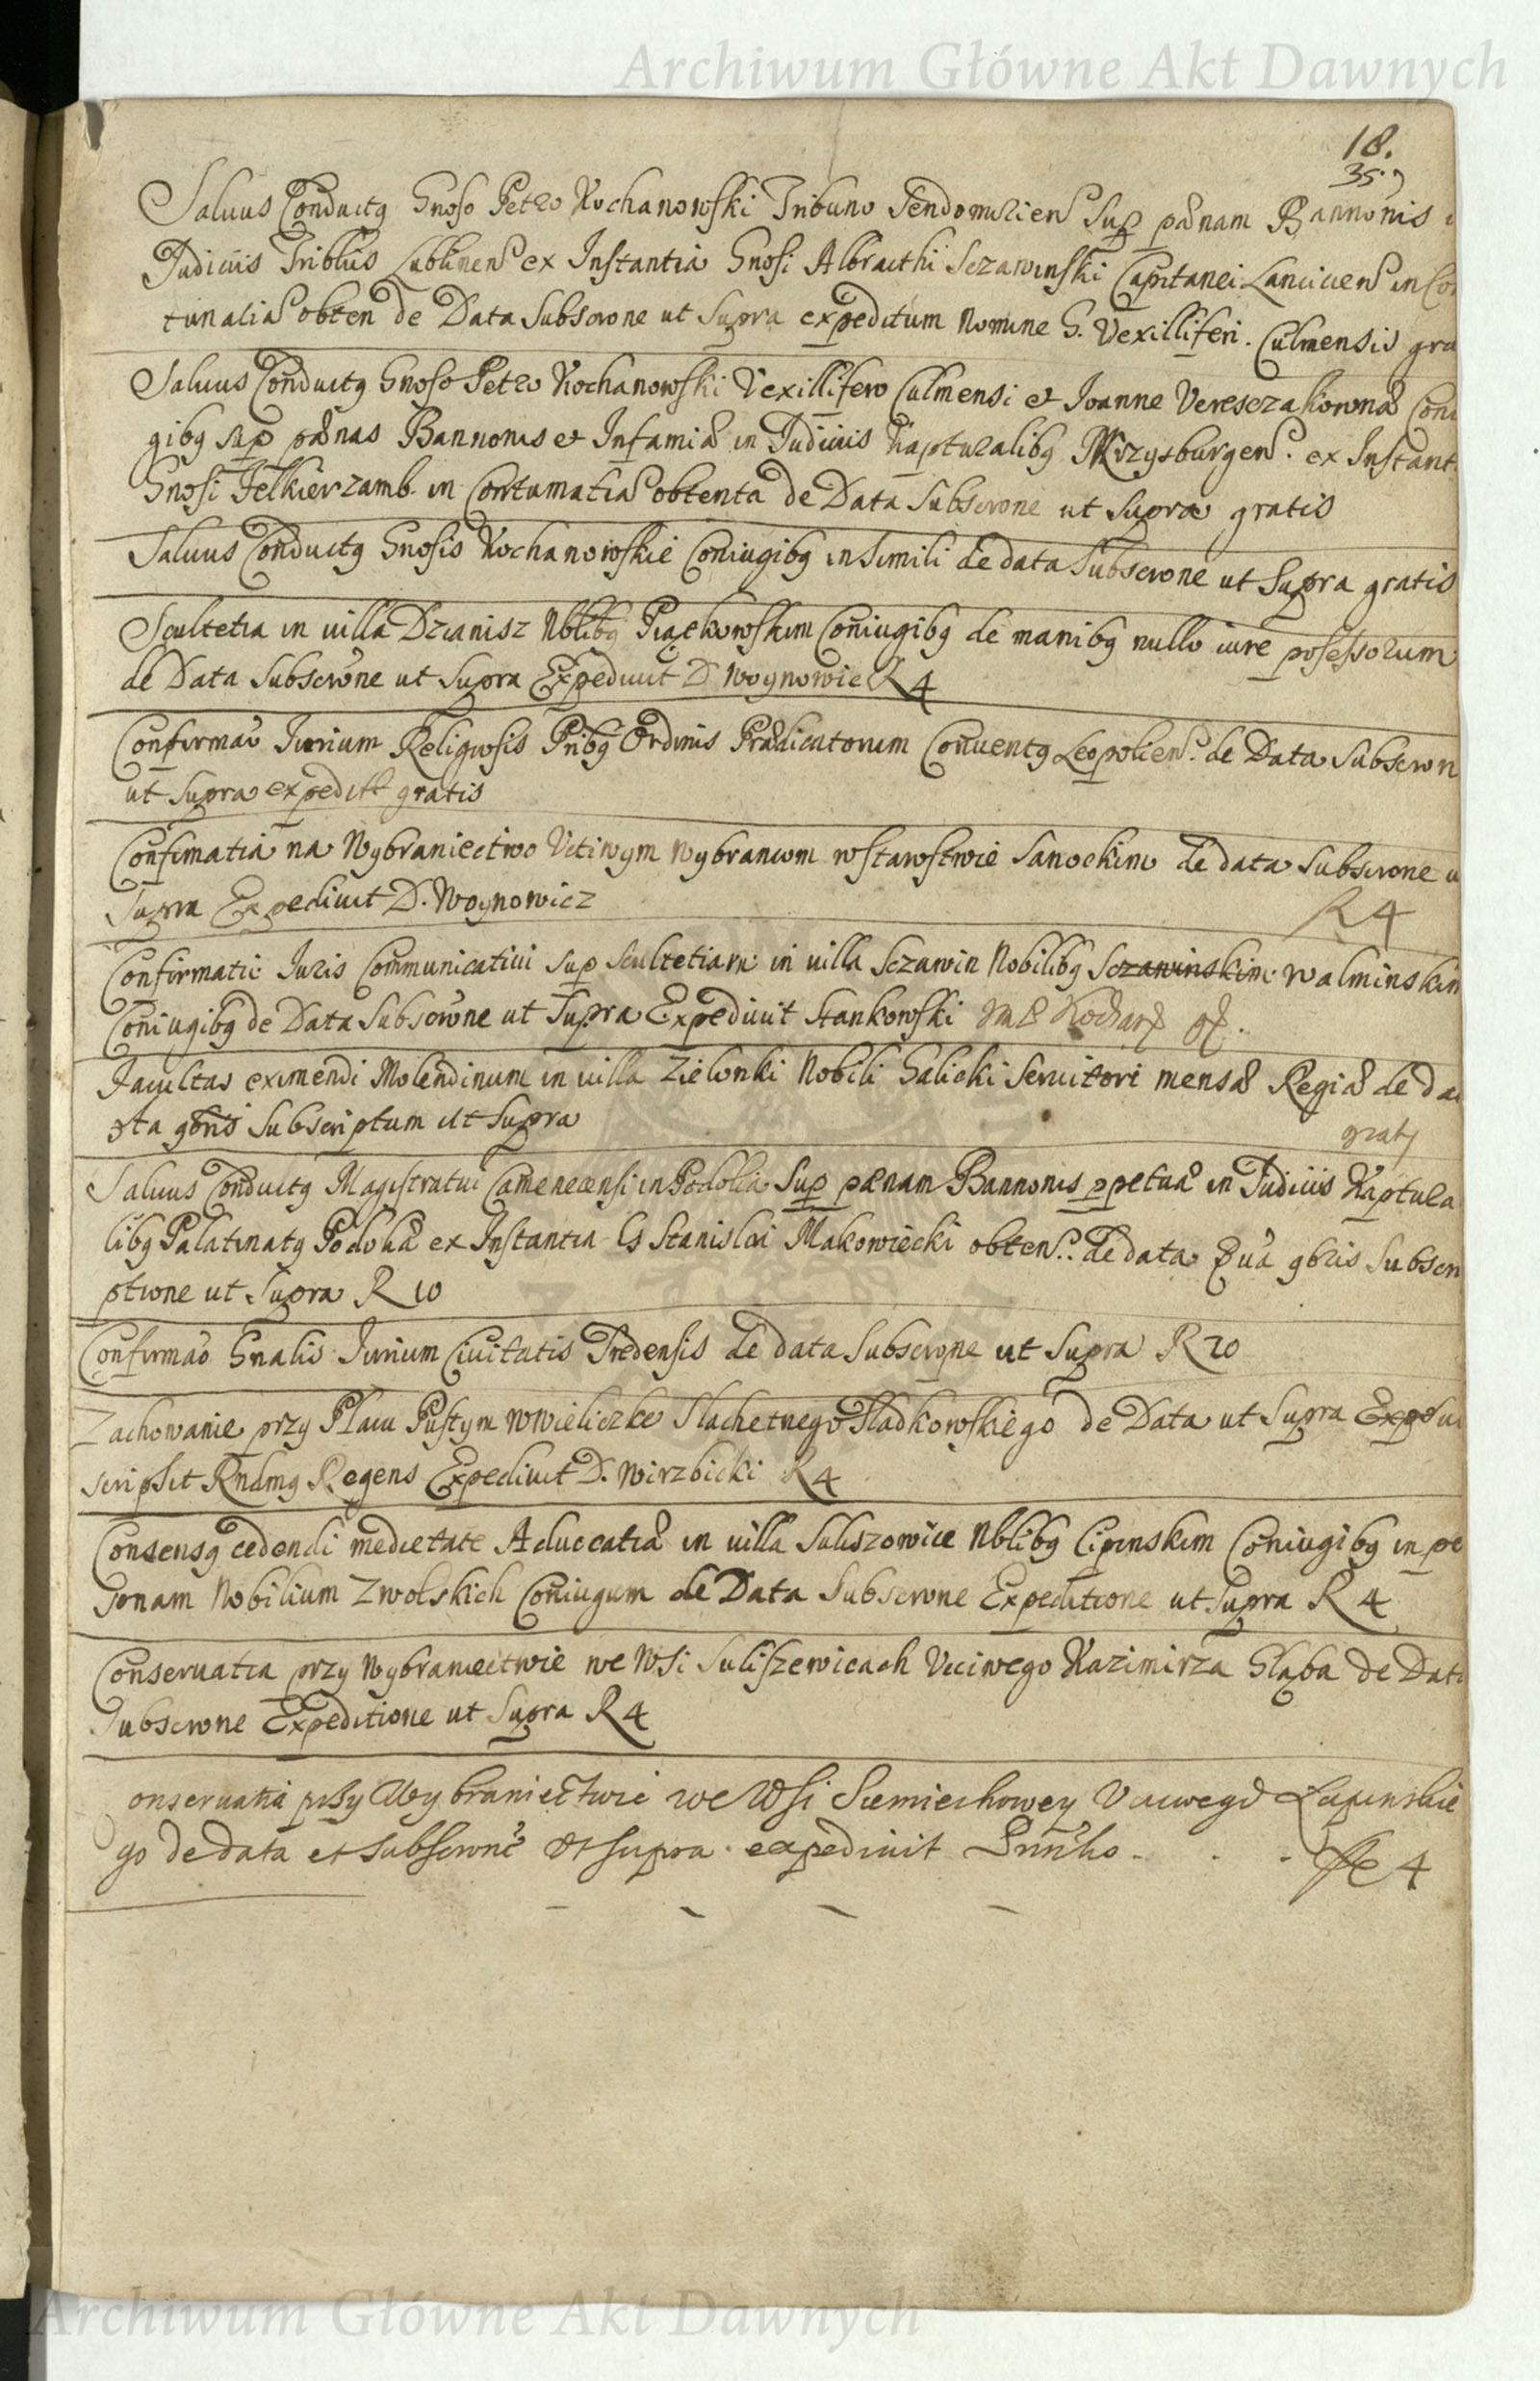 Archiwum Główne Akt Dawnych
18.
35.
Saluus Conductq Gnoso Petro Kochanowski Tribuno Sendomirien Sup pænam Bannonis
Judiciis Triblius Lublinen ex Instantia Gnosi Albracthi Sczawinski Capitanei Lancicien in Con
tumatia obten de Data Subscrone ut Supra expeditum Nomine G. Vexilliferi. Culmensis gra
Saluus Conductq Gnoso Petro Kochanowski Vexillifero Culmensi et Joanne Veresczakowna Coni
gibq sup pænas Bannonis et Infamiæ in Judiciis Kapturalibq Mrzysburgen. ex Instant
Gnosi Felkierzamb. in Contumatia obtenta de Data Subscrone ut Supra gratis
Saluus Conductq Gnosis Kochanowskie Coniugibq in Simili de data Subscrone ut Supra gratis
Scultetia in uilla Dzianisz Nblibq Piąckowskim Coniugibq de manibq nullo iure posessorum
de Data Subscrone ut Supra Expediuit D Woynowic R 4
Confirmao Jurium Religiosis Pribq Ordinis Prædicatorum Conuentq Leopolien. de Data Subscron
ut Supra expeditt gratis
Confirmatia na Wybraniectwo Uctiwym Wybrancom w starostwie Sanockim de data Subscrone u
Supra Expediuit D. Woynowicz
R 4
Confirmatic Juris Communicatiui sup scultetiam in uilla Sczawin Nobilibq Sczawinskim Walminskim
Coniugibq de Data Subscrone ut Supra Expediuit Stankowski
Facultas eximendi Molendinum in uilla Zielonki Nobili Galicki Seruitori mensæ Regiæ de da
ta Subscriptum ut Supra
gratis
Saluus Conductq Magistratui Camenecensi in Podolia Sup pænam Bannonis ppetuæ in Judiciis Kaptura
libq Palatinatq Podoliæ ex Instantia Gs Stanislai Makowiecki obten. de data Subscri
ptione ut Supra R 10
Confirmao Gnalis Jurium Ciuitatis Tredensis de data Subscrone ut Supra R 20
Zachowanie przy Placu Pustym w Wieliczke Slachetnego Sladkowskiego de Data ut Supra Expe Sub
scripsit Rndmq Regens Expediuit D. Wirzbicki R 4
Consensq cedendi medietate Aduocatiæ in uilla Suliszowice Nblibq Lipinskim Coniugibq in pe
sonam Nobilium Zwolskich Coniugum de Data Subscrone Expeditione ut Supra R 4
Conseruatia przy Wybraniectwie we Wsi Suliszewicach Ucciwego Kazimirza Glaba de Data
Subscrone Expeditione ut Supra R 4
onseruatia przy Wybraniectwie we Wsi Siemiechowey Ucciwego Łapinskie
go de data et subscrone ut supra. expediuit
R 4
Archiwum Główne Akt Dawnych